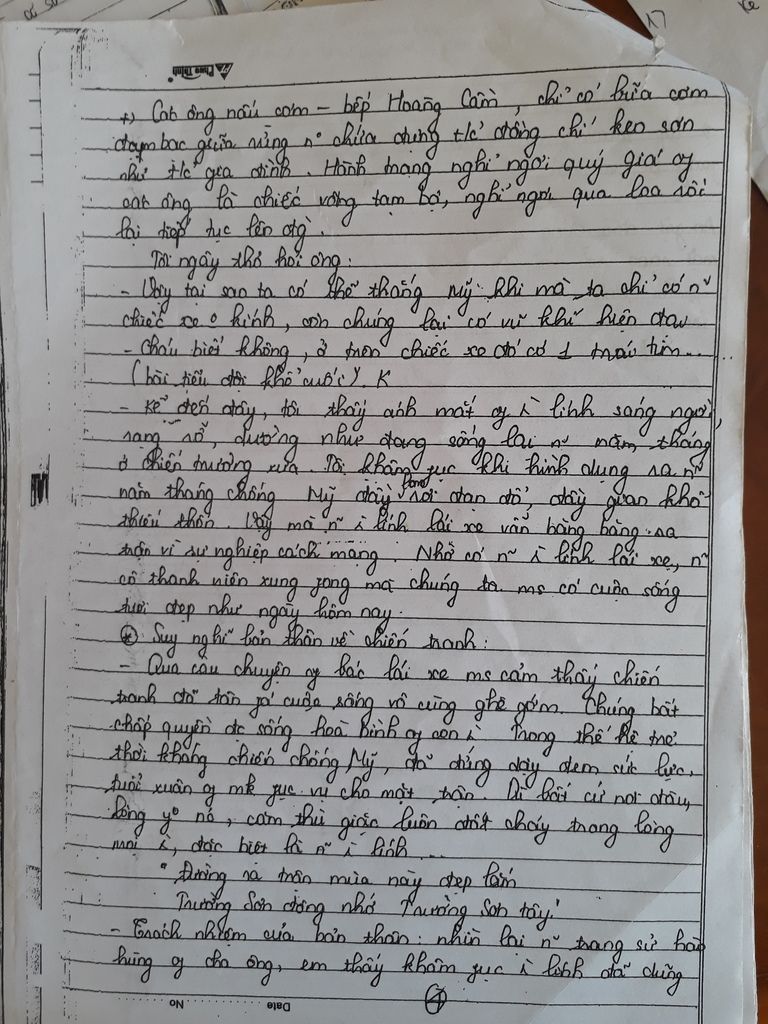 17
Phan Thịnh
+) Các ông nấu cơm – bếp Hoàng Cầm, chỉ có bữa cơm
đạm bạc giữa rừng n~ chứa đựng t/c' đồng chí keo sơn
như t/c' gia đình. Hành trang nghỉ ngơi quý giá of
các ông là chiếc võng tạm bợ, nghỉ ngơi qua loa rồi
lại tiếp tục lên đg`.
Tôi ngây thơ hỏi ông:
- Vậy tại sao ta có thể thắng Mỹ khi mà ta chỉ có n~
chiếc xe o kính, còn chúng lại có vũ khí hiện đại
- Cháu biết không, ở trên chiếc xe đó có 1 trái tim...
(bài tiểu đội khổ cuối) K
- Kể đến đây, tôi thấy ánh mắt of ì lính sáng ngời,
rạng rỡ, dường như đang sống lại n~ năm tháng
ở chiến trường xưa. Tôi khâm fục khi hình dung ra n~
năm tháng chống Mỹ đầy bom rơi đạn đổ, đầy gian khổ
thiếu thốn. Vậy mà n~ ì lính lái xe vẫn băng băng ra
trận vì sự nghiệp cách mạng. Nhờ có n~ ì lính lái xe, n~
cô thanh niên xung fong mà chúng ta ms có cuộc sống
tươi đẹp như ngày hôm nay.
* Suy nghĩ bản thân về chiến tranh:
- Qua câu chuyện of bác lái xe ms cảm thấy chiến
tranh đã tàn fá cuộc sống vô cùng ghê gớm. Chúng bất
chấp quyền đc sống hoà bình of con ì. Trong thế hệ trẻ
thời kháng chiến chống Mỹ, đã đứng dậy đem sức lực,
tuổi xuân of mk fục vụ cho mặt trận. Dù bất cứ nơi đâu,
lòng yo nc, căm thù giặc luôn đốt cháy trong lòng
mọi ì, đặc biệt là n~ ì lính...
"Đường ra trận mùa này đẹp lắm
Trường Sơn đông nhớ Trường Sơn tây"
- Trách nhiệm của bản thân: nhìn lại n~ trang sử hào
hùng of cha ông, em thấy khâm fục ì lính đã dũng
No
Date
4